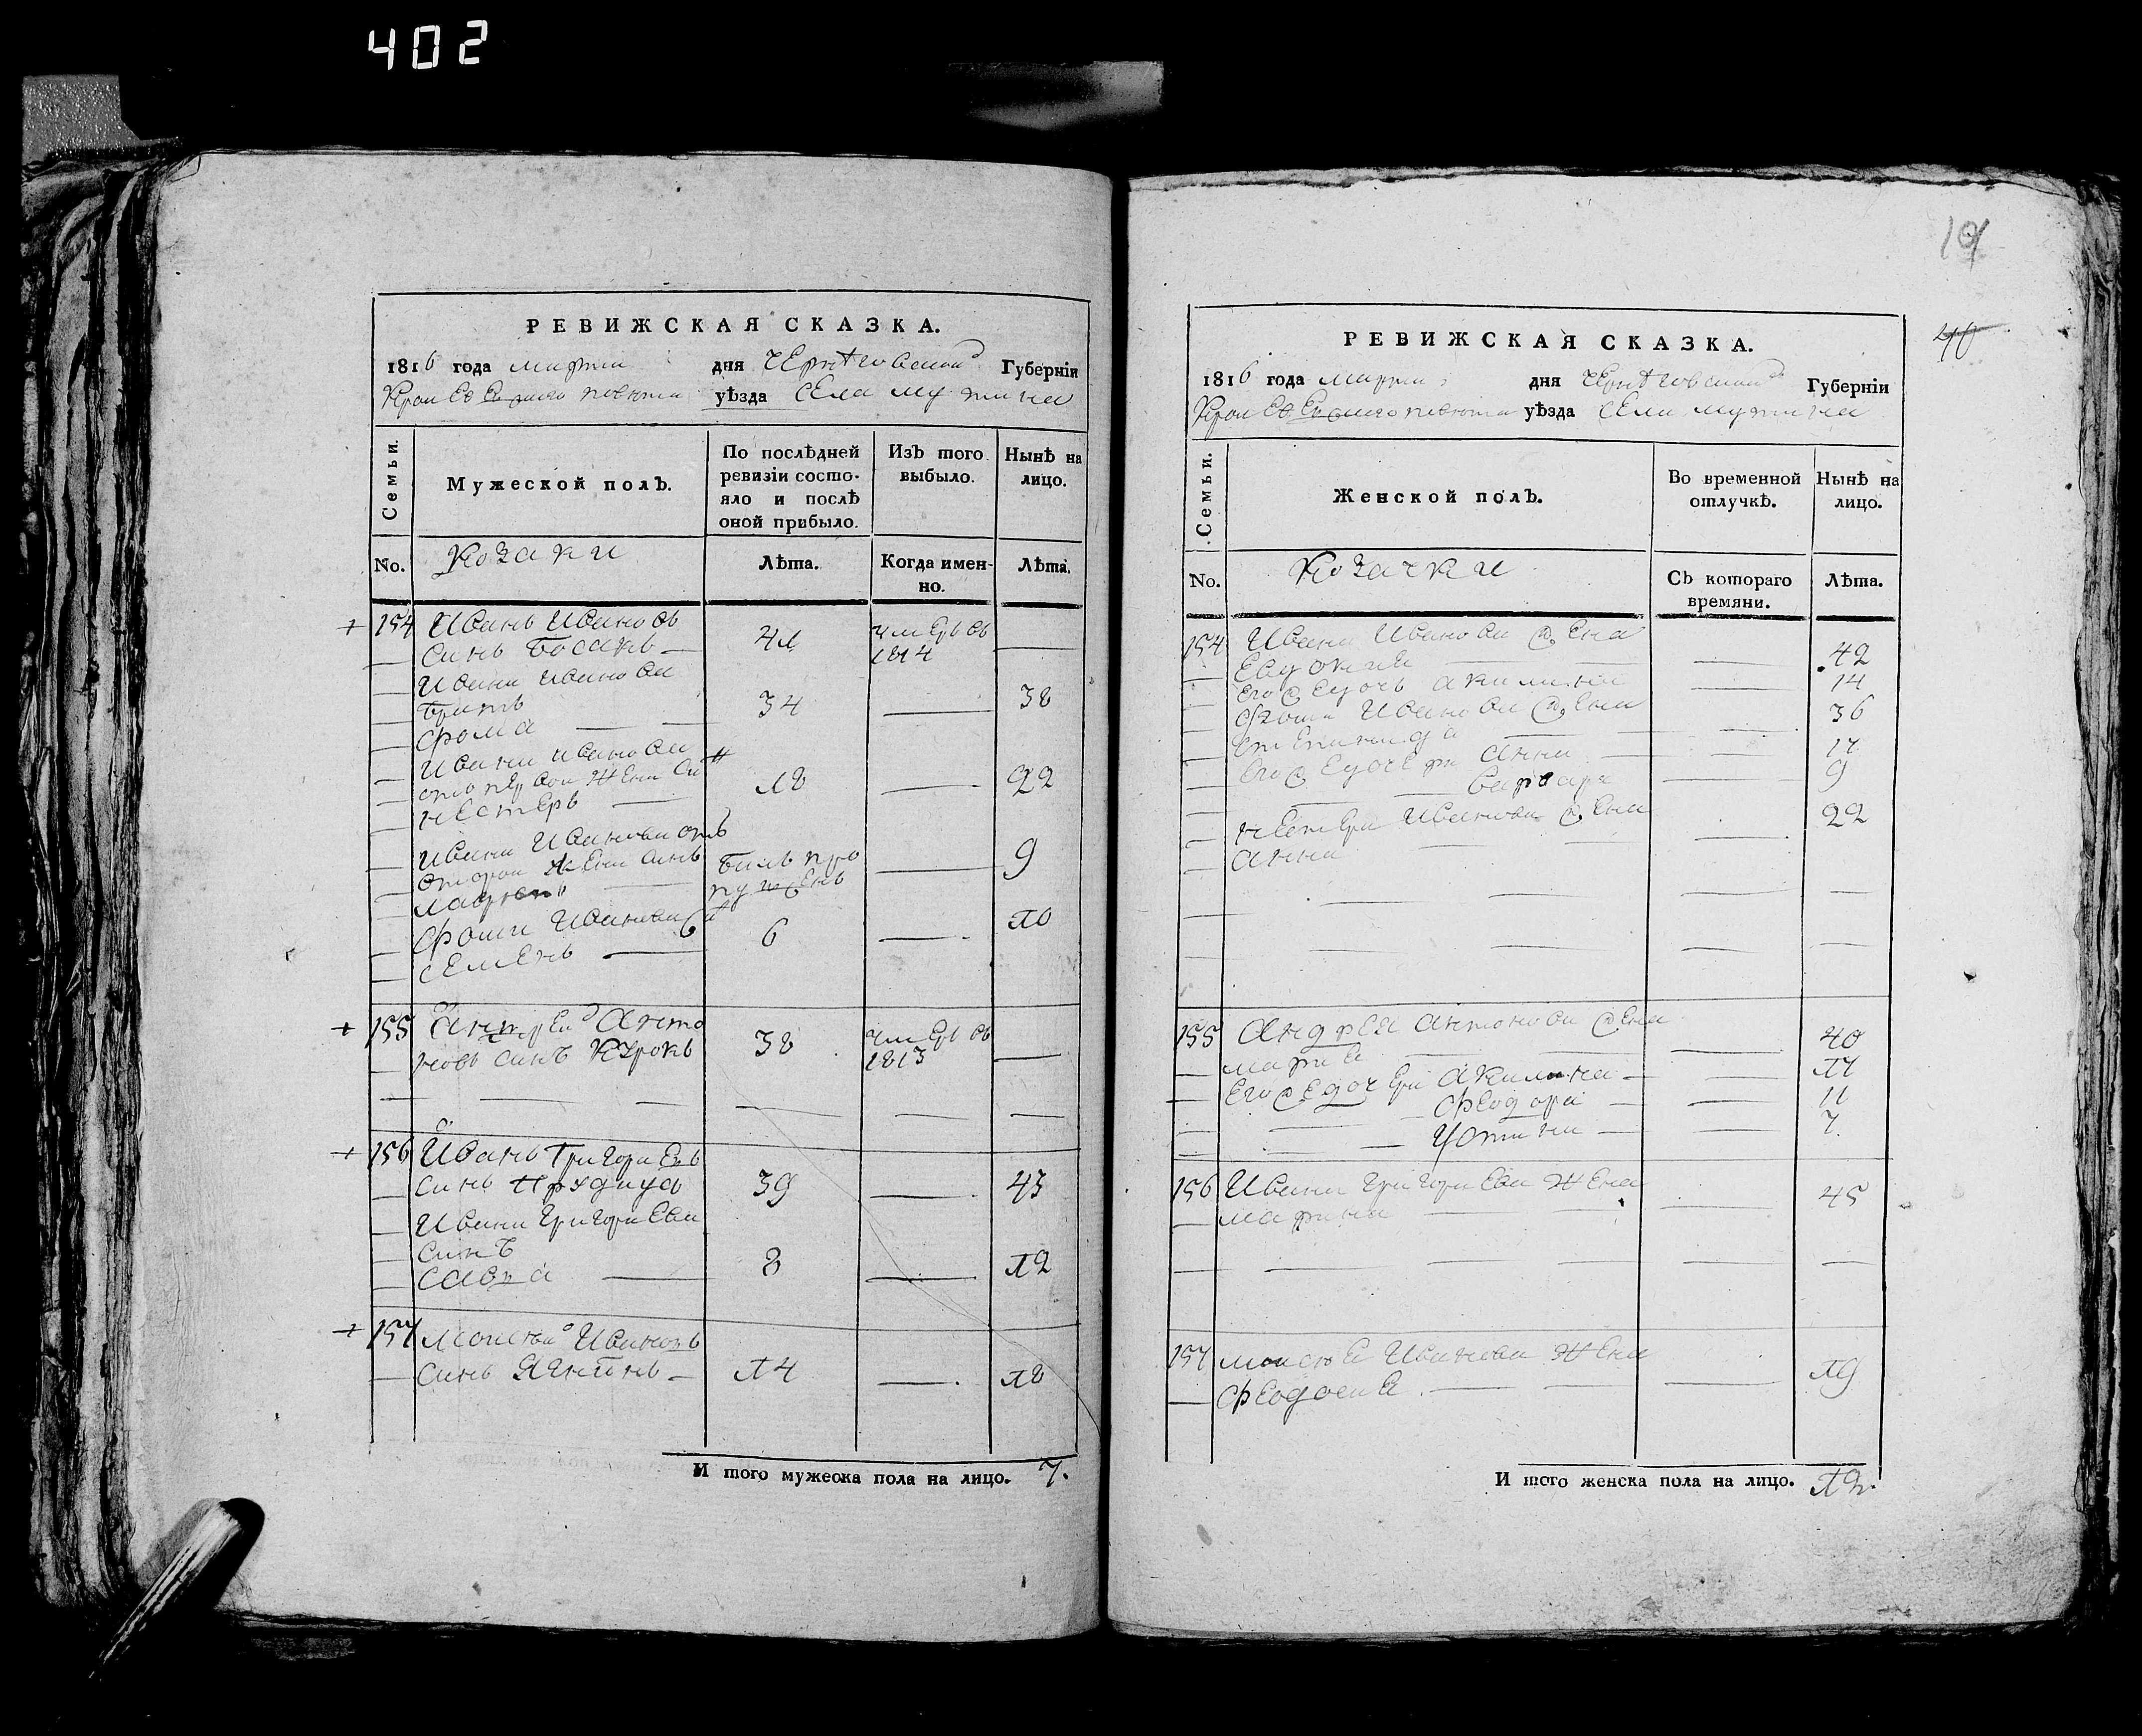 402
РЕВИЖСКАЯ СКАЗКА.
1816 года марта дня Черниговской Губерніи
Кролевецкого повета уѣзда села мутина
Семьи.
Мужеской полъ.
По послѣдней ревизіи состояло и послѣ оной прибыло.
Изъ того выбыло.
Нынѣ на лицо.
No.
козаки
Лѣта.
Когда именно.
Лѣта.
154 Иванъ Ивановъ
синъ Босакъ 41 умеръ въ 1814
Ивана Иванова
братъ
фома 34 38
Ивана Иванова
отъ первой жени синъ
нестеръ 18 22
Ивана Иванова отъ
второй жени синъ билъ про
пущенъ 9
фоми Иванова синъ
семенъ 6 10
155 Андрей Анто
новъ синъ 38 умеръ въ 1813
156 Иванъ Григориевъ
синъ 39 43
Ивана Григориева
синъ
савка 8 12
157 моисей Ивановъ
синъ 14 18
И того мужеска пола на лицо. 7.
19
40
РЕВИЖСКАЯ СКАЗКА.
1816 года марта дня Черниговской Губерніи
Кролевецкого повета уѣзда села мутина
Семьи.
Женской полъ.
Во временной отлучкѣ.
Нынѣ на лицо.
No.
козачки
Съ котораго времяни.
Лѣта.
154 Ивана Иванова жена
Евдокия 42
его же дочь акилина 14
фоми Иванова жена 36
степанида
его же дочери анна 17
варвара 9
нестера Иванова жена 22
анна
155 Андрея антонова жена
мария 40
его же дочери акилина 14
феодора 11
устина 7
156 Ивана григориева жена
марина 45
157 моисея Иванова жена
феодосия 19
И того женска пола на лицо. 12.